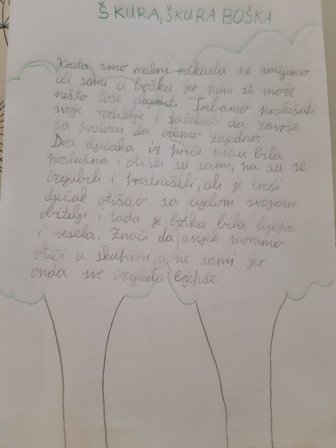 ŠKURA, ŠKURA BOŠKA
Kada smo maleni nikada ne smijemo
ići sami u bošku jer nam se može
nešto loše dogoditi. Trebamo poslušati
svoje roditelje i sačekati da završe
sa poslom da odemo zajedno.
Dva dječaka iz priče nisu bila
poslušna i otišli su sami, pa su se
izgubili i prestrašili, ali je treći
dječak otišao sa cijelom svojom
obitelji i tada je boška bila lijepa
i vesela. Znači da uvijek moramo
otići u skupini, a ne sami jer
onda sve izgleda ljepše.